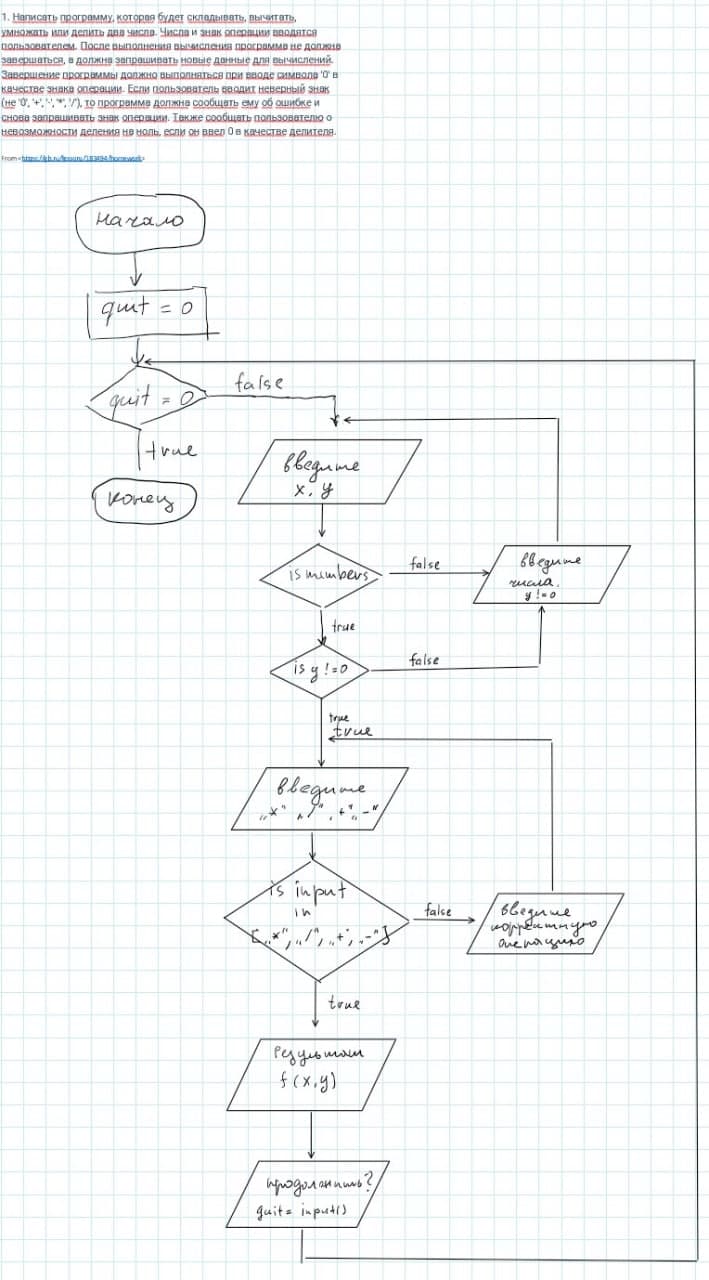 1. Написать программу, которая будет складывать, вычитать,
умножать или делить два числа. Числа и знак операции вводятся
пользователем. После выполнения вычисления программа не должна
завершаться, а должна запрашивать новые данные для вычислений.
Завершение программы должно выполняться при вводе символа '0' в
качестве знака операции. Если пользователь вводит неверный знак
(не '0', '+', '-', '*', '/'), то программа должна сообщать ему об ошибке и
снова запрашивать знак операции. Также сообщать пользователю о
невозможности деления на ноль, если он ввел 0 в качестве делителя.
From <https://gb.ru/lessons/183494/homework>
начало
quit = 0
quit = 0
false
true
конец
введите
x, y
is numbers
false
введите
числа.
y != 0
true
is y != 0
false
true
true
введите
„*“, „/“, „+“, „-“
is input
in
[„*“, „/“, „+“, „-“]
false
введите
корректную
операцию
true
Результат
f(x,y)
продолжить?
quit = input()